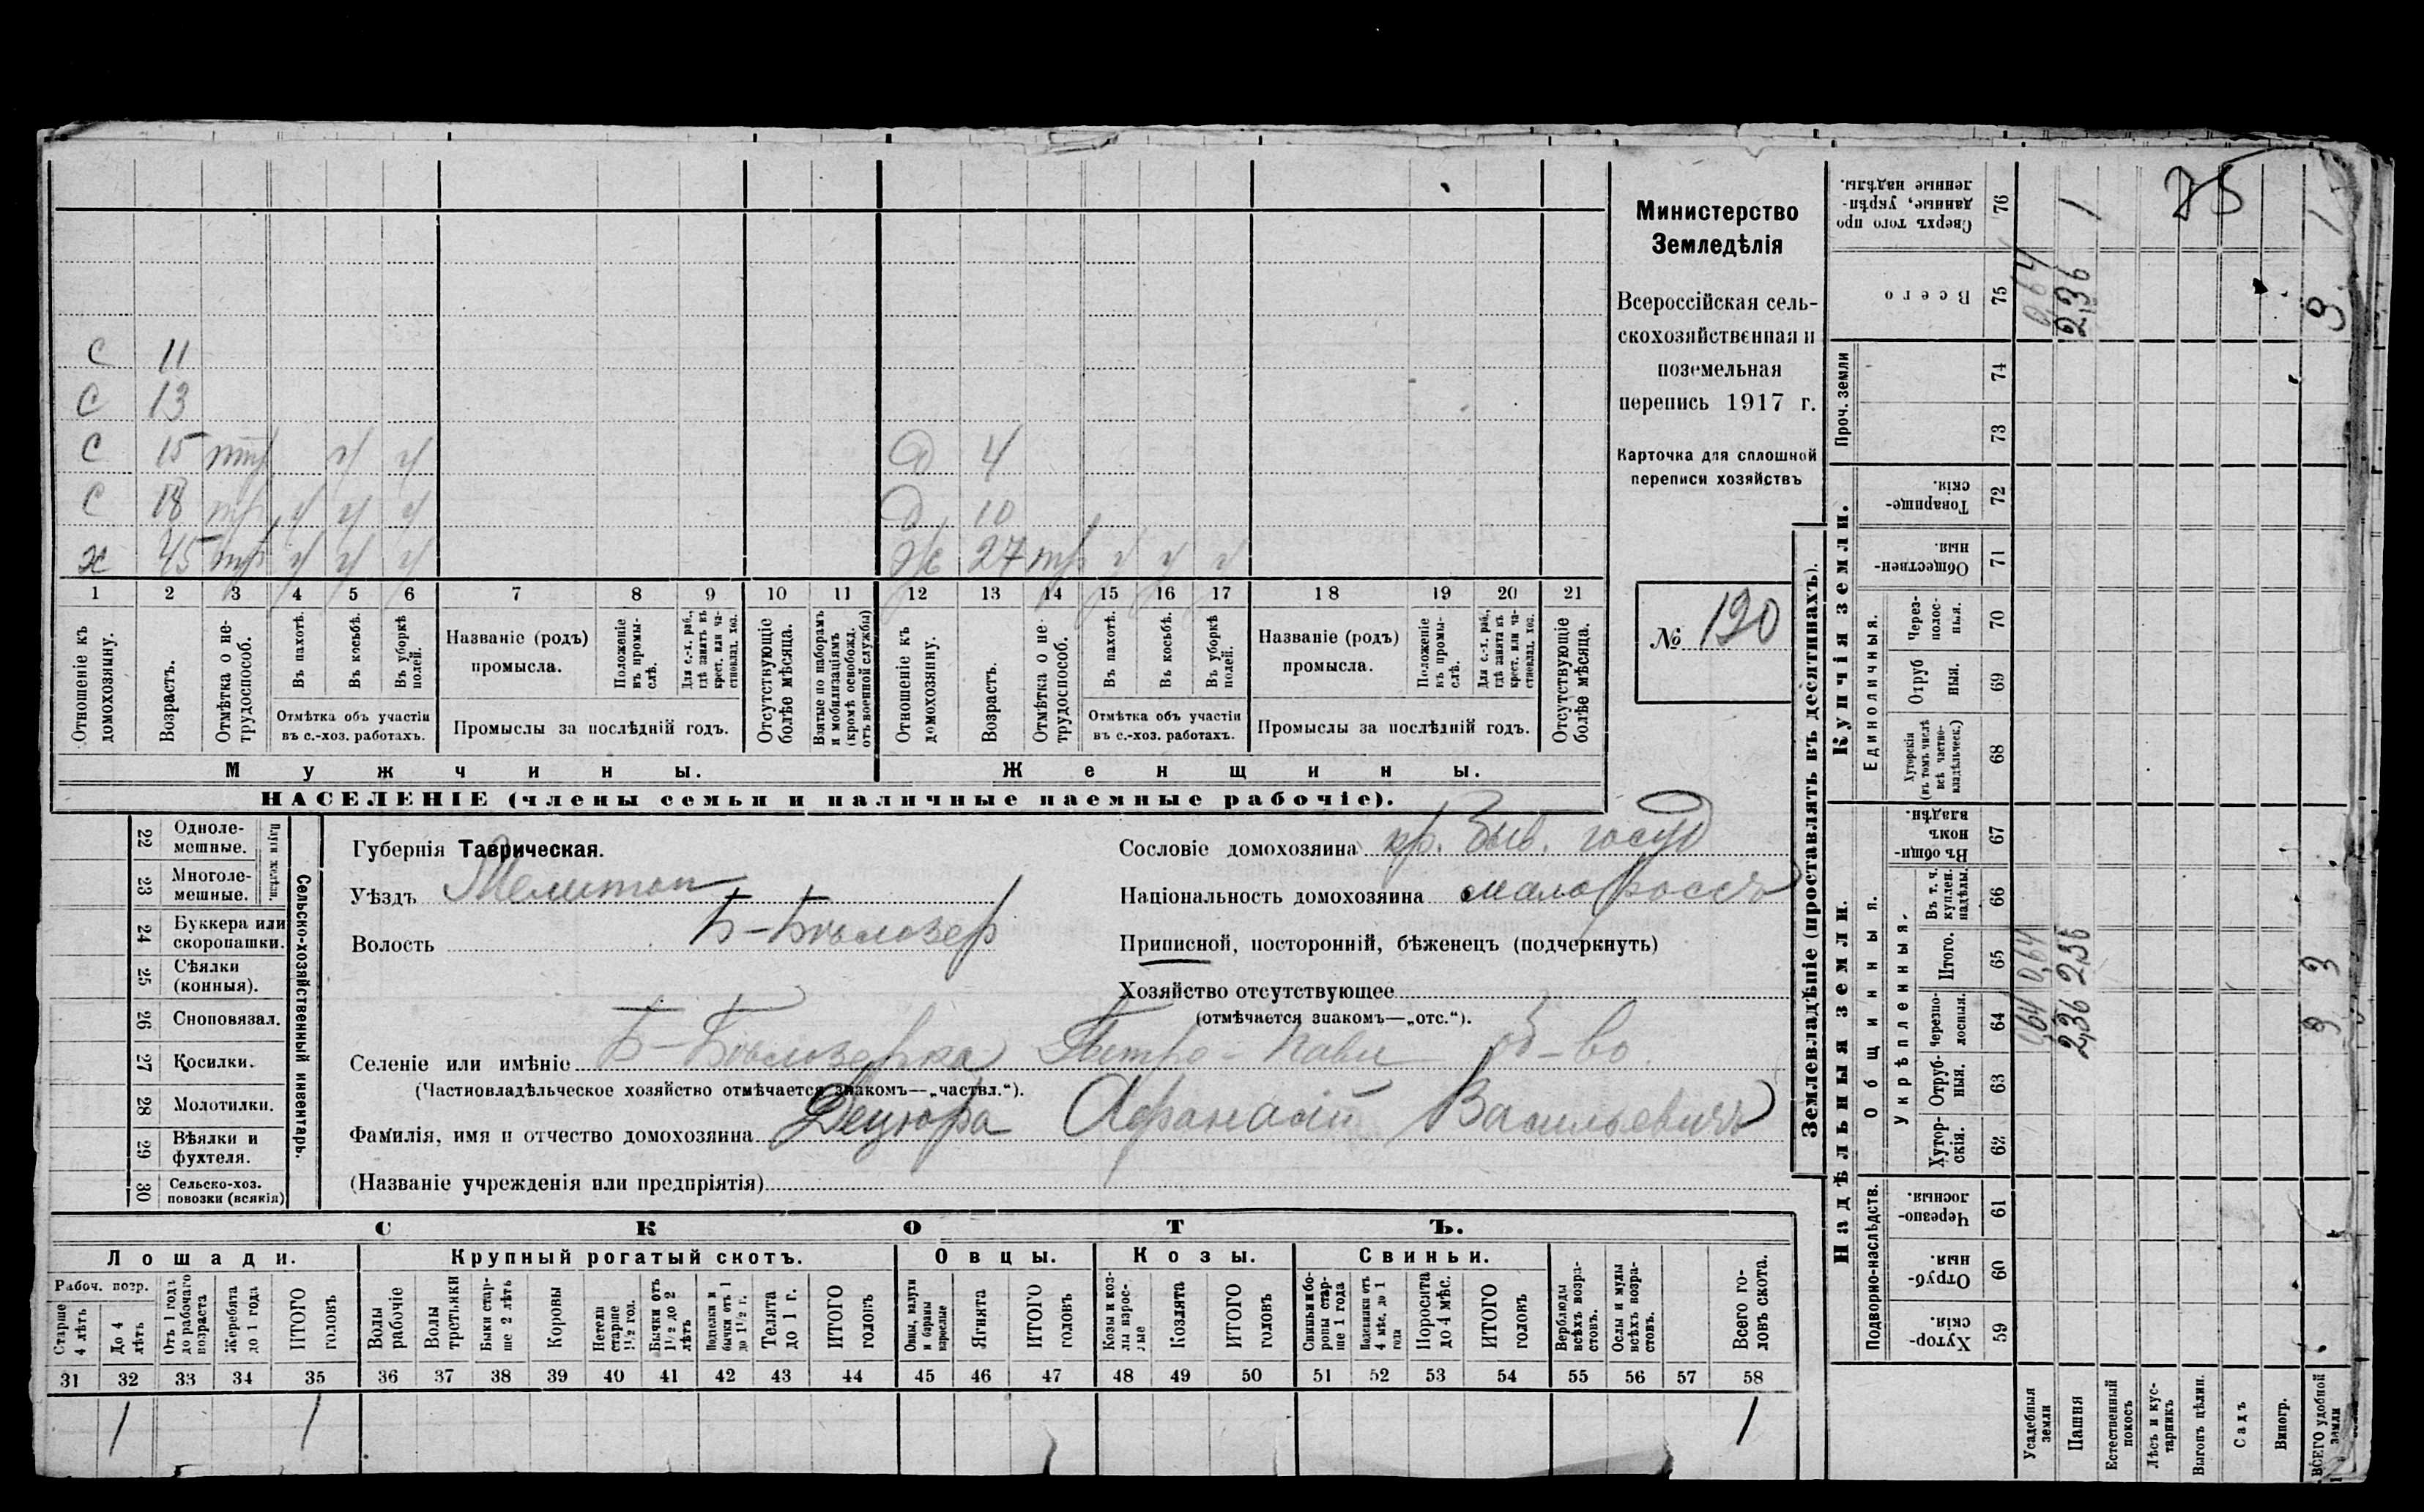 С 11
С 13
С 15 птр ч ч
Д 4
С 18 тр ч ч ч
Д 10
х 45 тр ч ч ч
Ж 27 тр ч ч ч
1 2 3 4 5 6 7 8 9 10 11 12 13 14 15 16 17 18 19 20 21
Отношеніе къ домохозяину.
Возрастъ.
Отмѣтка о не-трудоспособ.
Въ пахотѣ.
Въ косьбѣ.
Въ уборкѣ полей.
Отмѣтка объ участіи
въ с.-хоз. работахъ.
Названіе (родъ)
промысла.
Положеніе въ промы-слѣ.
Для с.-х. раб., гдѣ занятъ въ крест. или ча-стновлад. хоз.
Промыслы за послѣдній годъ.
Отсутствующіе болѣе мѣсяца.
Взятые по наборамъ и мобилизаціямъ (кромѣ освобожд. отъ военной службы)
Отношеніе къ домохозяину.
Возрастъ.
Отмѣтка о не-трудоспособ.
Въ пахотѣ.
Въ косьбѣ.
Въ уборкѣ полей.
Отмѣтка объ участіи
въ с.-хоз. работахъ.
Названіе (родъ)
промысла.
Положеніе въ промы-слѣ.
Для с.-х. раб., гдѣ занята въ крест. или ча-стновлад. хоз.
Промыслы за послѣдній годъ.
Отсутствующіе болѣе мѣсяца.
Мужчины.
Женщины.
НАСЕЛЕНІЕ (члены семьи и наличные наемные рабочіе).
Министерство
Земледѣлія
Всероссійская сель-
скохозяйственная и
поземельная
перепись 1917 г.
Карточка для сплошной
переписи хозяйствъ
№ 120
22 Одноле-
мешные.
23 Многоле-
мешные.
Плуги желѣзн.
24 Буккера или
скоропашки.
25 Сѣялки
(конныя).
26 Сноповязал.
27 Косилки.
28 Молотилки.
29 Вѣялки и
фухтеля.
30 Сельско-хоз.
повозки (всякія)
Сельско-хозяйственный инвентарь.
Губернія Таврическая.
Уѣздъ Мелитоп
Волость Б-Бѣлозер
Сословіе домохозяина кр. быв. госуд
Національность домохозяина малороссъ
Приписной, посторонній, бѣженецъ (подчеркнуть)
Хозяйство отсутствующее
(отмѣчается знакомъ—„отс.“).
Селеніе или имѣніе Б-Бѣлозерка Петро-Павл об-во.
(Частновладѣльческое хозяйство отмѣчается знакомъ—„частвл.“).
Фамилія, имя и отчество домохозяина Децюра Афанасій Васильевичъ
(Названіе учрежденія или предпріятія)
СКОТЪ.
Лошади.
Крупный рогатый скотъ.
Овцы.
Козы.
Свиньи.
Рабоч. возр.
Старше 4 лѣтъ
До 4 лѣтъ
Отъ 1 года до рабочаго возраста
Жеребята до 1 года
ИТОГО головъ
Волы рабочіе
Волы третьяки
Быки стар-ше 2 лѣтъ
Коровы
Нетели старше 1½ год.
Бычки отъ 1½ до 2 лѣтъ
Подтелки и бычки отъ 1 до 1½ г.
Телята до 1 г.
ИТОГО головъ
Овцы, валухи и бараны взрослые
Ягнята
ИТОГО головъ
Козы и коз-лы взрос-лые
Козлята
ИТОГО головъ
Свиньи и бо-ровы стар-ше 1 года
Подсвинки отъ 4 мѣс. до 1 года
Поросята до 4 мѣс.
ИТОГО головъ
Верблюды всѣхъ возра-стовъ.
Ослы и мулы всѣхъ возра-стовъ.
Всего го-ловъ скота.
31 32 33 34 35 36 37 38 39 40 41 42 43 44 45 46 47 48 49 50 51 52 53 54 55 56 57 58
1 1 1
Землевладѣніе (проставлять въ десятинахъ).
Купчія земли.
Надѣльныя земли.
Сверхъ того про-данные, укрѣп-ленные надѣлы. 76
1
Всего 75
0,64 2,36
3 1
Проч. земли
74
73
Товарище-скія. 72
Обществен-ныя. 71
Единоличныя.
Через-полос-ныя. 70
Отруб-ныя. 69
Хуторскія (въ томъ числѣ всѣ частно-владѣльческ.) 68
Общинныя.
Въ общин-номъ владѣн. 67
Укрѣпленныя.
Въ т. ч. куплен. надѣлы. 66
Итого. 65
0,64 2,36 3
Черезпо-лосныя. 64
0,64 2,36 3
Отруб-ныя. 63
Хутор-скія. 62
Подворно-наслѣдств.
Черезпо-лосныя. 61
Отруб-ныя. 60
Хутор-скія. 59
Усадебныя земли
Пашня
Естественный покосъ
Лѣсъ и кус-тарникъ
Выгонъ цѣлин.
Садъ
Виногр.
ВСЕГО удобной земли